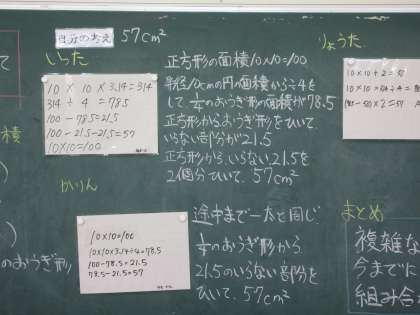 自分の考え
57cm²
いった
10 × 10 × 3.14 = 314
314 ÷ 4 = 78.5
100 - 78.5 = 21.5
100 - 21.5 - 21.5 = 57
10×10=100
正方形の面積10×10=100
半径10cmの円の面積から÷4を
して、¼のおうぎ形の面積が78.5
正方形からおうぎ形をひいて、
いらない部分が21.5
正方形から、いらない21.5を
2個分ひいて、57cm²
りょうた
10×10÷2=50
積
かりん
10×10=100
10×10×3.14÷4=78.5
100-78.5=21.5
78.5-21.5=57
途中まで一太と同じ
¼のおうぎ形から
21.5のいらない部分を
ひいて、57cm²
のおうぎ形
まとめ
複雑な
今までに
組み合